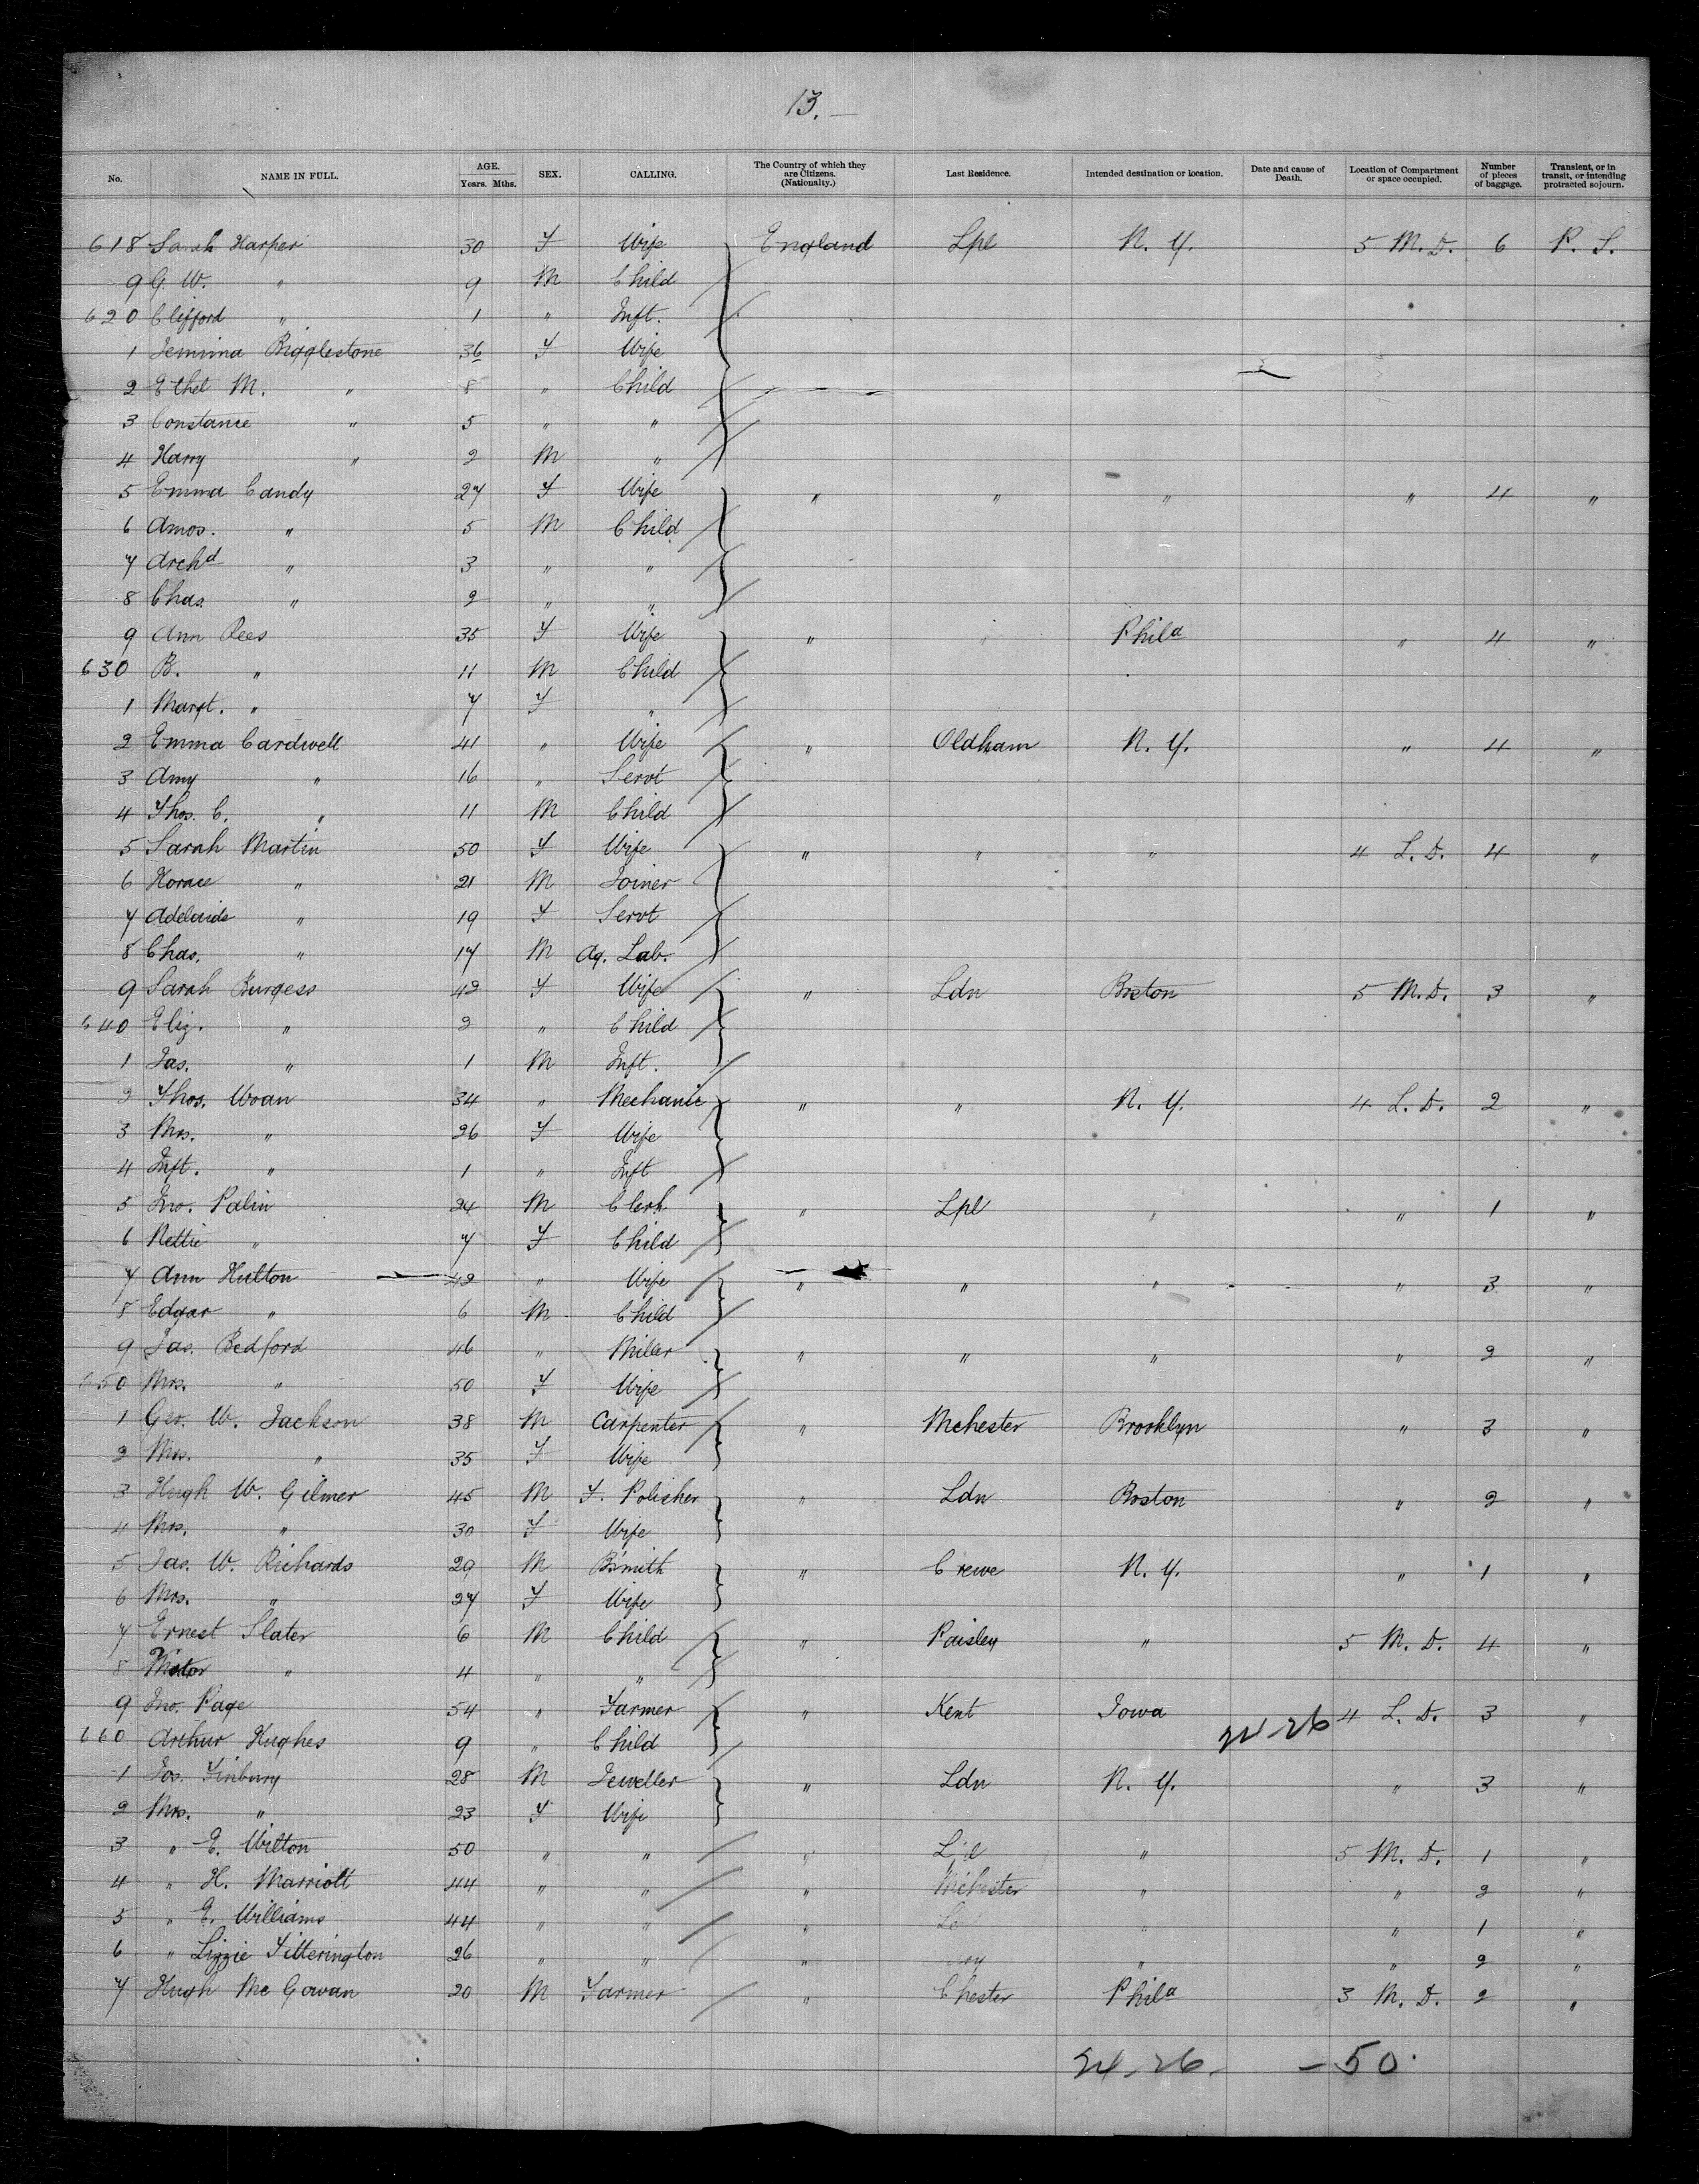 13.
No. NAME IN FULL. AGE. Years. Mths. SEX. CALLING. The Country of which they are Citizens. (Nationality.) Last Residence. Intended destination or location. Date and cause of Death. Location of Compartment or space occupied. Number of pieces of baggage. Transient, or in transit, or intending protracted sojourn.
618 Sarah Harper 30 F Wife England Lpl N. Y. 5 M. D. 6 P. S.
9 G. W. " 9 M Child
620 Clifford " 1 " Inft.
1 Jemima Bigglestone 36 F Wife
2 Ethel M. " 8 " Child
3 Constance " 5 " "
4 Harry " 2 M "
5 Emma Candy 27 F Wife " " " " 4 "
6 Amos. " 5 M Child
7 Archd " 3 " "
8 Chas. " 2 " "
9 Ann Rees 35 F Wife " " Phila " 4 "
630 B. " 11 M Child
1 Margt. " 7 F "
2 Emma Cardwell 41 " Wife " Oldham N. Y. " 4 "
3 Amy " 16 " Servt
4 Thos. C. " 11 M Child
5 Sarah Martin 50 F Wife " " " 4 L. D. 4 "
6 Horace " 21 M Joiner
7 Adelaide " 19 F Servt
8 Chas. " 17 M Ag. Lab.
9 Sarah Burgess 42 F Wife " Ldn Boston 5 M. D. 3 "
640 Eliz. " 2 " Child
1 Jas. " 1 M Inft.
2 Thos. Woan 34 " Mechanic " " N. Y. 4 L. D. 2 "
3 Mrs. " 26 F Wife
4 Inft. " 1 " Inft
5 Jno. Palin 24 M Clerk " Lpl " " 1 "
6 Nettie " 7 F Child
7 Ann Hulton 42 " Wife " " " " 3 "
8 Edgar " 6 M Child
9 Jas. Bedford 46 " Miller " " " " 2 "
650 Mrs. " 50 F Wife
1 Geo. W. Jackson 38 M Carpenter " Mchester Brooklyn " 3 "
2 Mrs. " 35 F Wife
3 Hugh W. Gilmer 45 M F. Polisher " Ldn Boston " 2 "
4 Mrs. " 30 F Wife
5 Jas. W. Richards 29 M B'smith " Crewe N. Y. " 1 "
6 Mrs. " 27 F Wife
7 Ernest Slater 6 M Child " Paisley " 5 M. D. 4 "
8 " 4 " "
9 Jno. Page 54 " Farmer " Kent Iowa 4 L. D. 3 "
24-26
660 Arthur Hughes 9 " Child
1 Jos. Finbury 28 M Jeweller " Ldn N. Y. " 3 "
2 Mrs. " 23 F Wife
3 " E. Wilton 50 " " " Lpl " 5 M. D. 1 "
4 " H. Marriott 44 " " " Mchester " " 2 "
5 " E. Williams 44 " " " " " 1 "
6 " Lizzie Titterington 26 " " " " " 2 "
7 Hugh Mc Gowan 20 M Farmer " Chester Phila 3 M. D. 2 "
24-26- -50